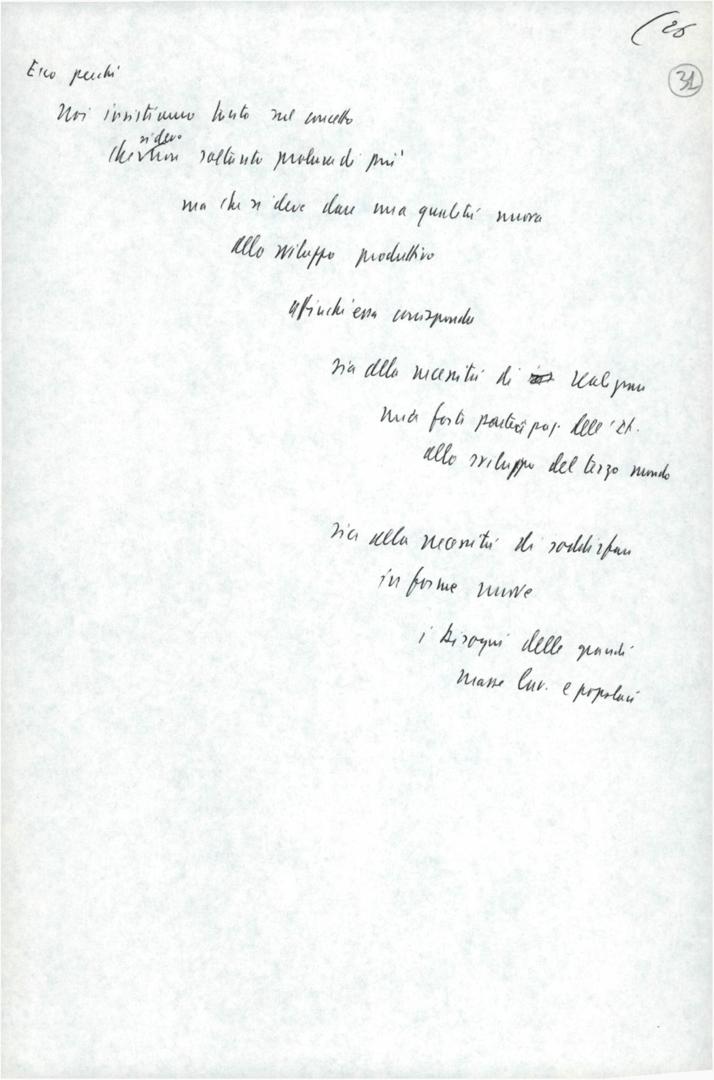 (26
31
Ecco perché
Noi insistiamo tanto sul concetto
si deve
che non soltanto produrre di più
ma che si deve dare una qualità nuova
allo sviluppo produttivo
affinché essa corrisponda
sia alla necessità di realizzare
una forte partecipaz. dell'It.
allo sviluppo del terzo mondo
sia alla necessità di soddisfare
in forme nuove
i bisogni delle grandi
masse lav. e popolari